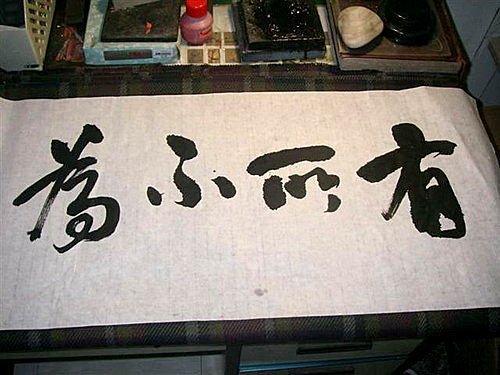 有所不為